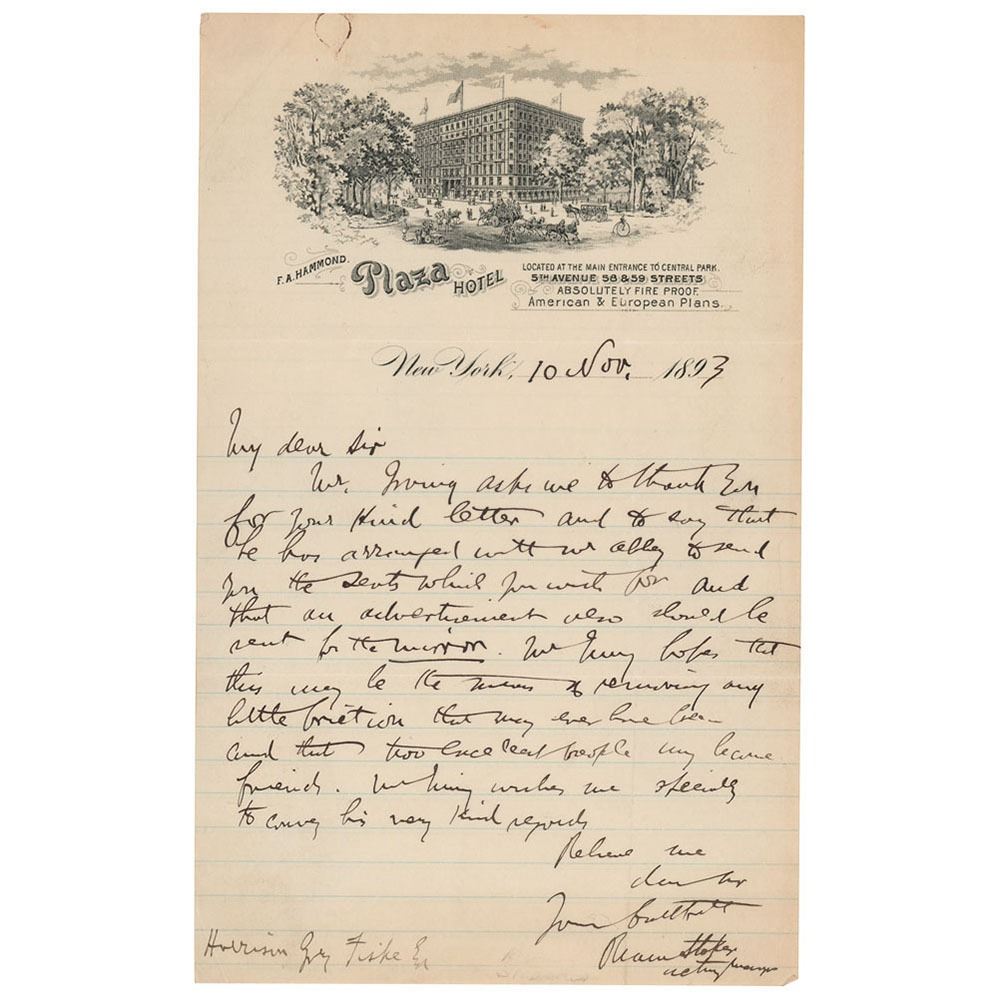 F. A. HAMMOND.
Plaza HOTEL
LOCATED AT THE MAIN ENTRANCE TO CENTRAL PARK.
5TH AVENUE 58 & 59 STREETS
ABSOLUTELY FIRE PROOF.
American & European Plans.
New York, 10 Nov. 1893
My dear Sir
Mr. Irving asks me to thank you
for your kind letter and to say that
he has arranged with Mr Abbey to send
you the seats which you wish for and
that an advertisement also should be
sent for the Mirror. Mr Irving hopes that
this may be the means of removing any
little friction that may ever have been
and that two excellent people may become
friends. Mr Irving wishes me specially
to convey his very kind regards
Believe me
dear Sir
Yours faithfully
Bram Stoker
acting manager
Harrison Grey Fiske Esq